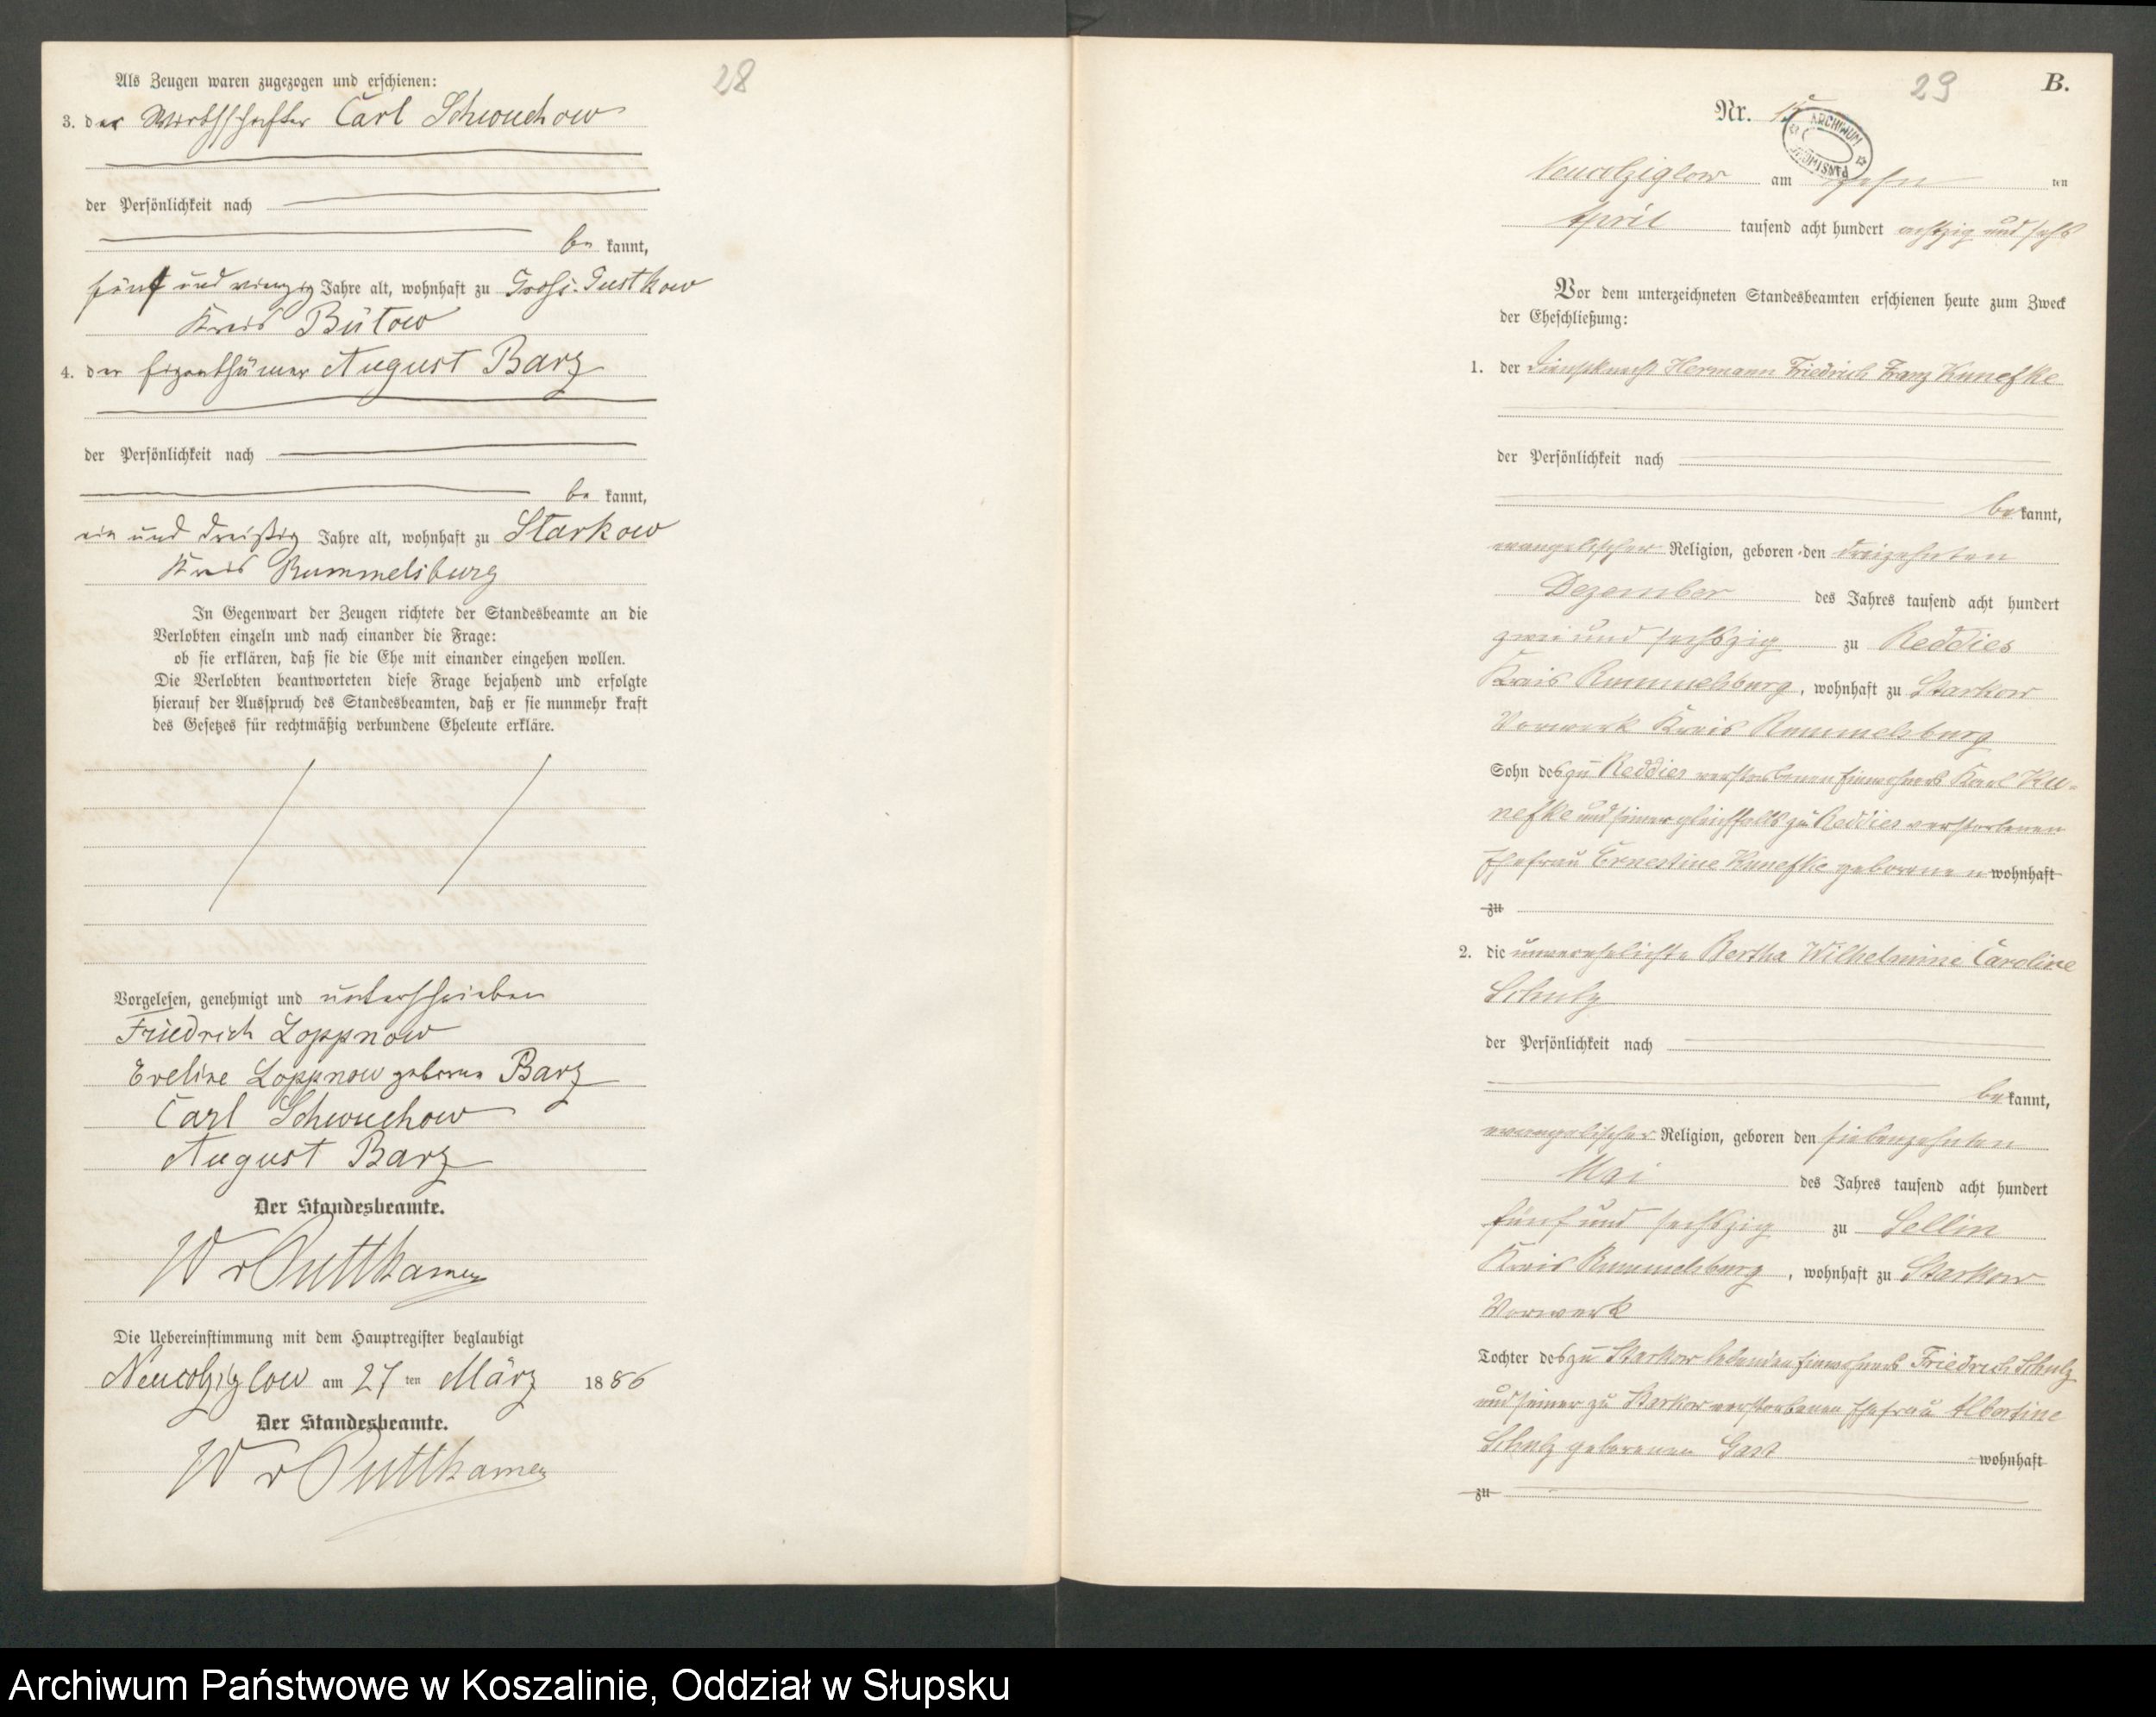 Als Zeugen waren zugezogen und erschienen:
28
3. der Wirthschafter Carl Schwuchow
der Persönlichkeit nach
be kannt,
fünf und vierzig Jahre alt, wohnhaft zu Gross-Tustkow
Kreis Bütow
4. der Eigenthümer August Barz
der Persönlichkeit nach
be kannt,
ein und dreißig Jahre alt, wohnhaft zu Starkow
Kreis Rummelsburg
In Gegenwart der Zeugen richtete der Standesbeamte an die
Verlobten einzeln und nach einander die Frage:
ob sie erklären, daß sie die Ehe mit einander eingehen wollen.
Die Verlobten beantworteten diese Frage bejahend und erfolgte
hierauf der Ausspruch des Standesbeamten, daß er sie nunmehr kraft
des Gesetzes für rechtmäßig verbundene Eheleute erkläre.
Vorgelesen, genehmigt und unterschrieben
Friedrich Loppnow
Eveline Loppnow geborene Barz
Carl Schwuchow
August Barz
Der Standesbeamte.
W v Puttkamer
Die Uebereinstimmung mit dem Hauptregister beglaubigt
Neucolziglow am 27 ten März 1886
Der Standesbeamte.
W v Puttkamer
29
B.
Nr. 15
ARCHIWUM
Neucolziglow am zehn ten
April tausend acht hundert achtzig und sechs
Vor dem unterzeichneten Standesbeamten erschienen heute zum Zweck
der Eheschließung:
1. der Dienstknecht Hermann Friedrich Franz Kunefke
der Persönlichkeit nach
be kannt,
evangelischer Religion, geboren den dreizehnten
Dezember des Jahres tausend acht hundert
zwei und sechszig zu Reddies
Kreis Rummelsburg, wohnhaft zu Starkow
Vorwerk Kreis Rummelsburg
Sohn des zu Reddies verstorbenen Einwohners Karl Ku-
nefke und seiner gleichfalls zu Reddies verstorbenen
Ehefrau Ernestine Kunefke geborenen wohnhaft
zu
2. die unverehelichte Bertha Wilhelmine Caroline
Schulz
der Persönlichkeit nach
be kannt,
evangelischer Religion, geboren den siebenzehnten
Mai des Jahres tausend acht hundert
fünf und sechszig zu Sellin
Kreis Rummelsburg, wohnhaft zu Starkow
Vorwerk
Tochter des zu Starkow lebenden Einwohners Friedrich Schulz
und seiner zu Starkow verstorbenen Ehefrau Albertine
Schulz geborenen Gast wohnhaft
zu
Archiwum Państwowe w Koszalinie, Oddział w Słupsku